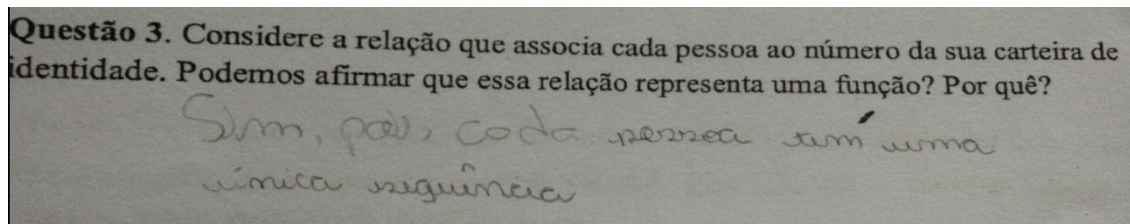 Questão 3. Considere a relação que associa cada pessoa ao número da sua carteira de
identidade. Podemos afirmar que essa relação representa uma função? Por quê?
Sim, pois, cada pessoa tem uma
única sequência